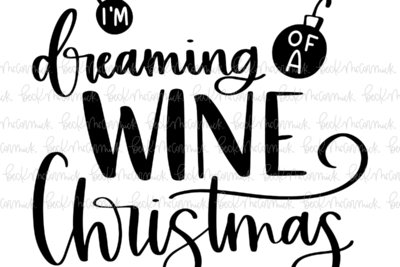 I'M
dreaming
OF
A
WINE
Christmas